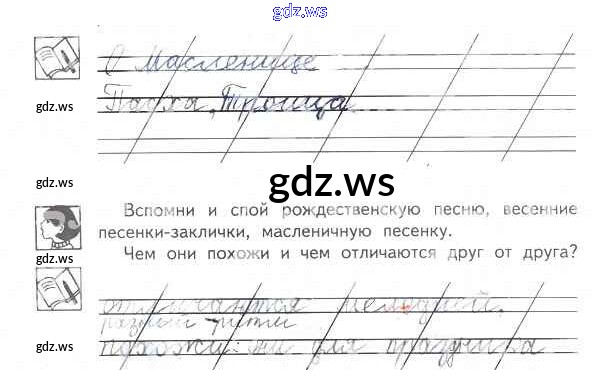 gdz.ws
О Масленице
gdz.ws
Пасха, Троица
gdz.ws
gdz.ws
Вспомни и спой рождественскую песню, весенние
песенки-заклички, масленичную песенку.
gdz.ws
Чем они похожи и чем отличаются друг от друга?
отличаются мелодией,
разный ритм
gdz.ws
похожи: они для праздника